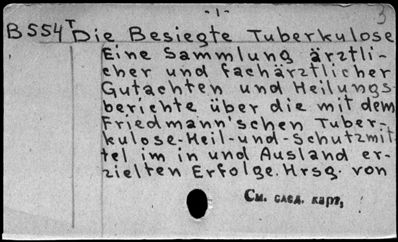 -1-
3
B554 T Die Besiegte Tuberkulose
Eine Sammlung ärztli-
cher und fachärztlicher
Gutachten und Heilungs-
berichte über die mit dem
Friedmann'schen Tuber-
kulose-Heil-und-Schutzmit-
tel im in und Ausland er-
zielten Erfolge. Hrsg. von
См. след. карт,